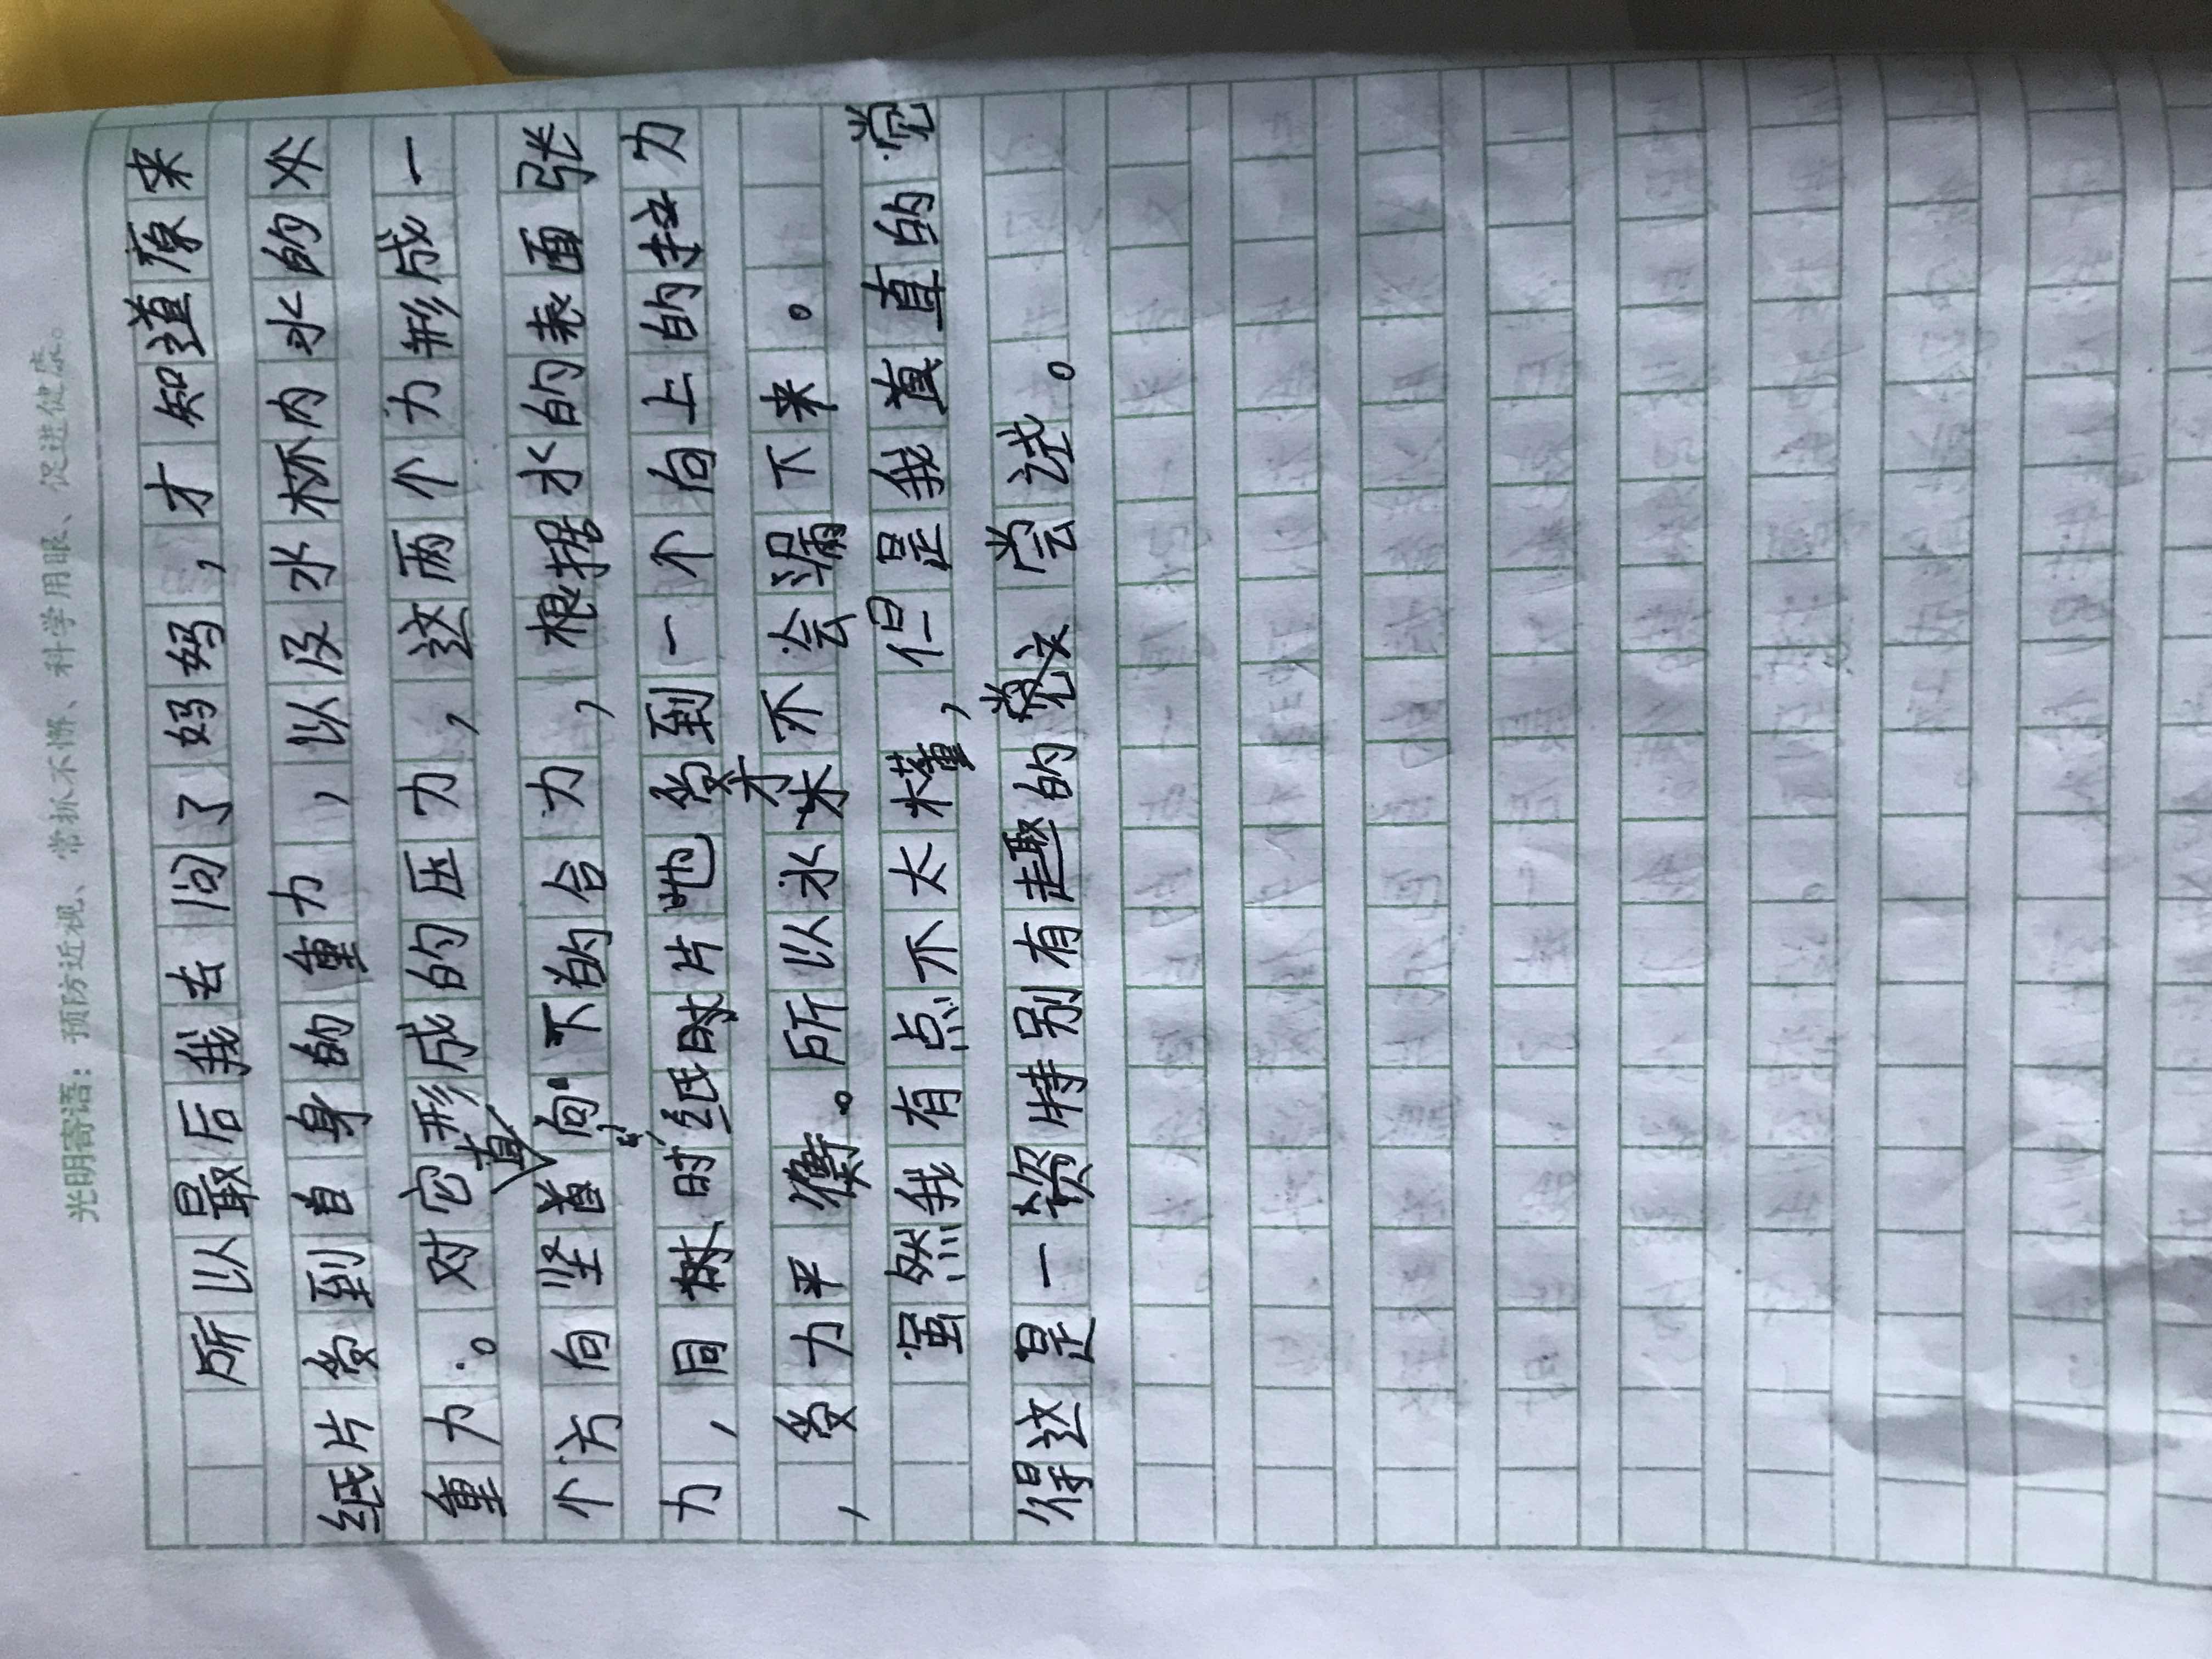 光明寄语：预防近视、常抓不懈、科学用眼、促进健康。
所以最后我去问了妈妈，才知道原来
纸片受到自身的重力，以及水杯内水的
重力。对它形成的压力，这两个力形成一
个方向竖直向下的合力，根据水的表面张
力，同时纸片也受到一个向上的拉力
，受力平衡。所以水才不会漏下来。
虽然我有点不太懂，但是我真真的觉
得这是一次特别有趣的尝试。